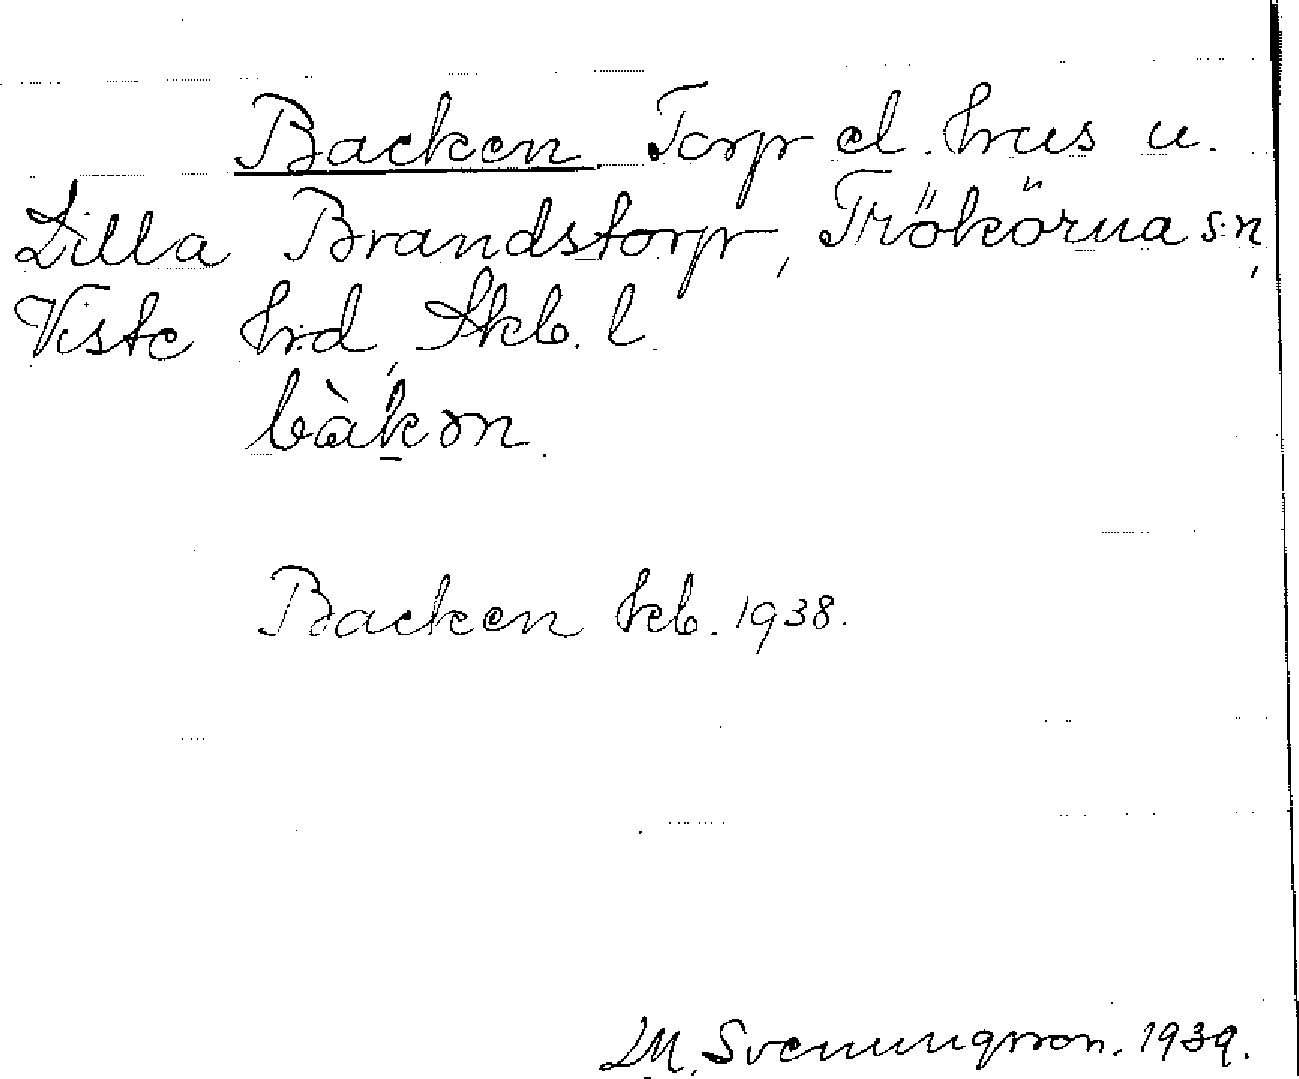 Backen Torp el. hus u.
Lilla Brandstorp, Trökörna sn,
Viste hrd, Skb. l.
bàkɔn.
Backen kb. 1938.
M. Svenungsson. 1939.